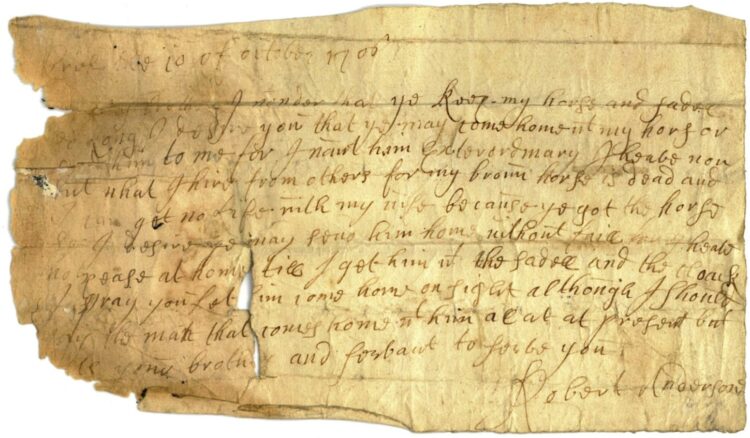 the 10 of october 1706
I wonder that ye keep my horse and sadell
long I desire you that ye may come home wt my hors or
him to me for I want him Exterordinary I heave non
but what I hire from others for my broun horse is dead and
I can get no Life with my wife because ye got the horse
I desire ye may send him home without faill heave
no pease at home till I get him wt the sadell and the cloack
I pray you Let him come home on sight although I should
pay the man that comes home wt him al at at present but
is your brother and serbant to serbe you
Robert Anderson